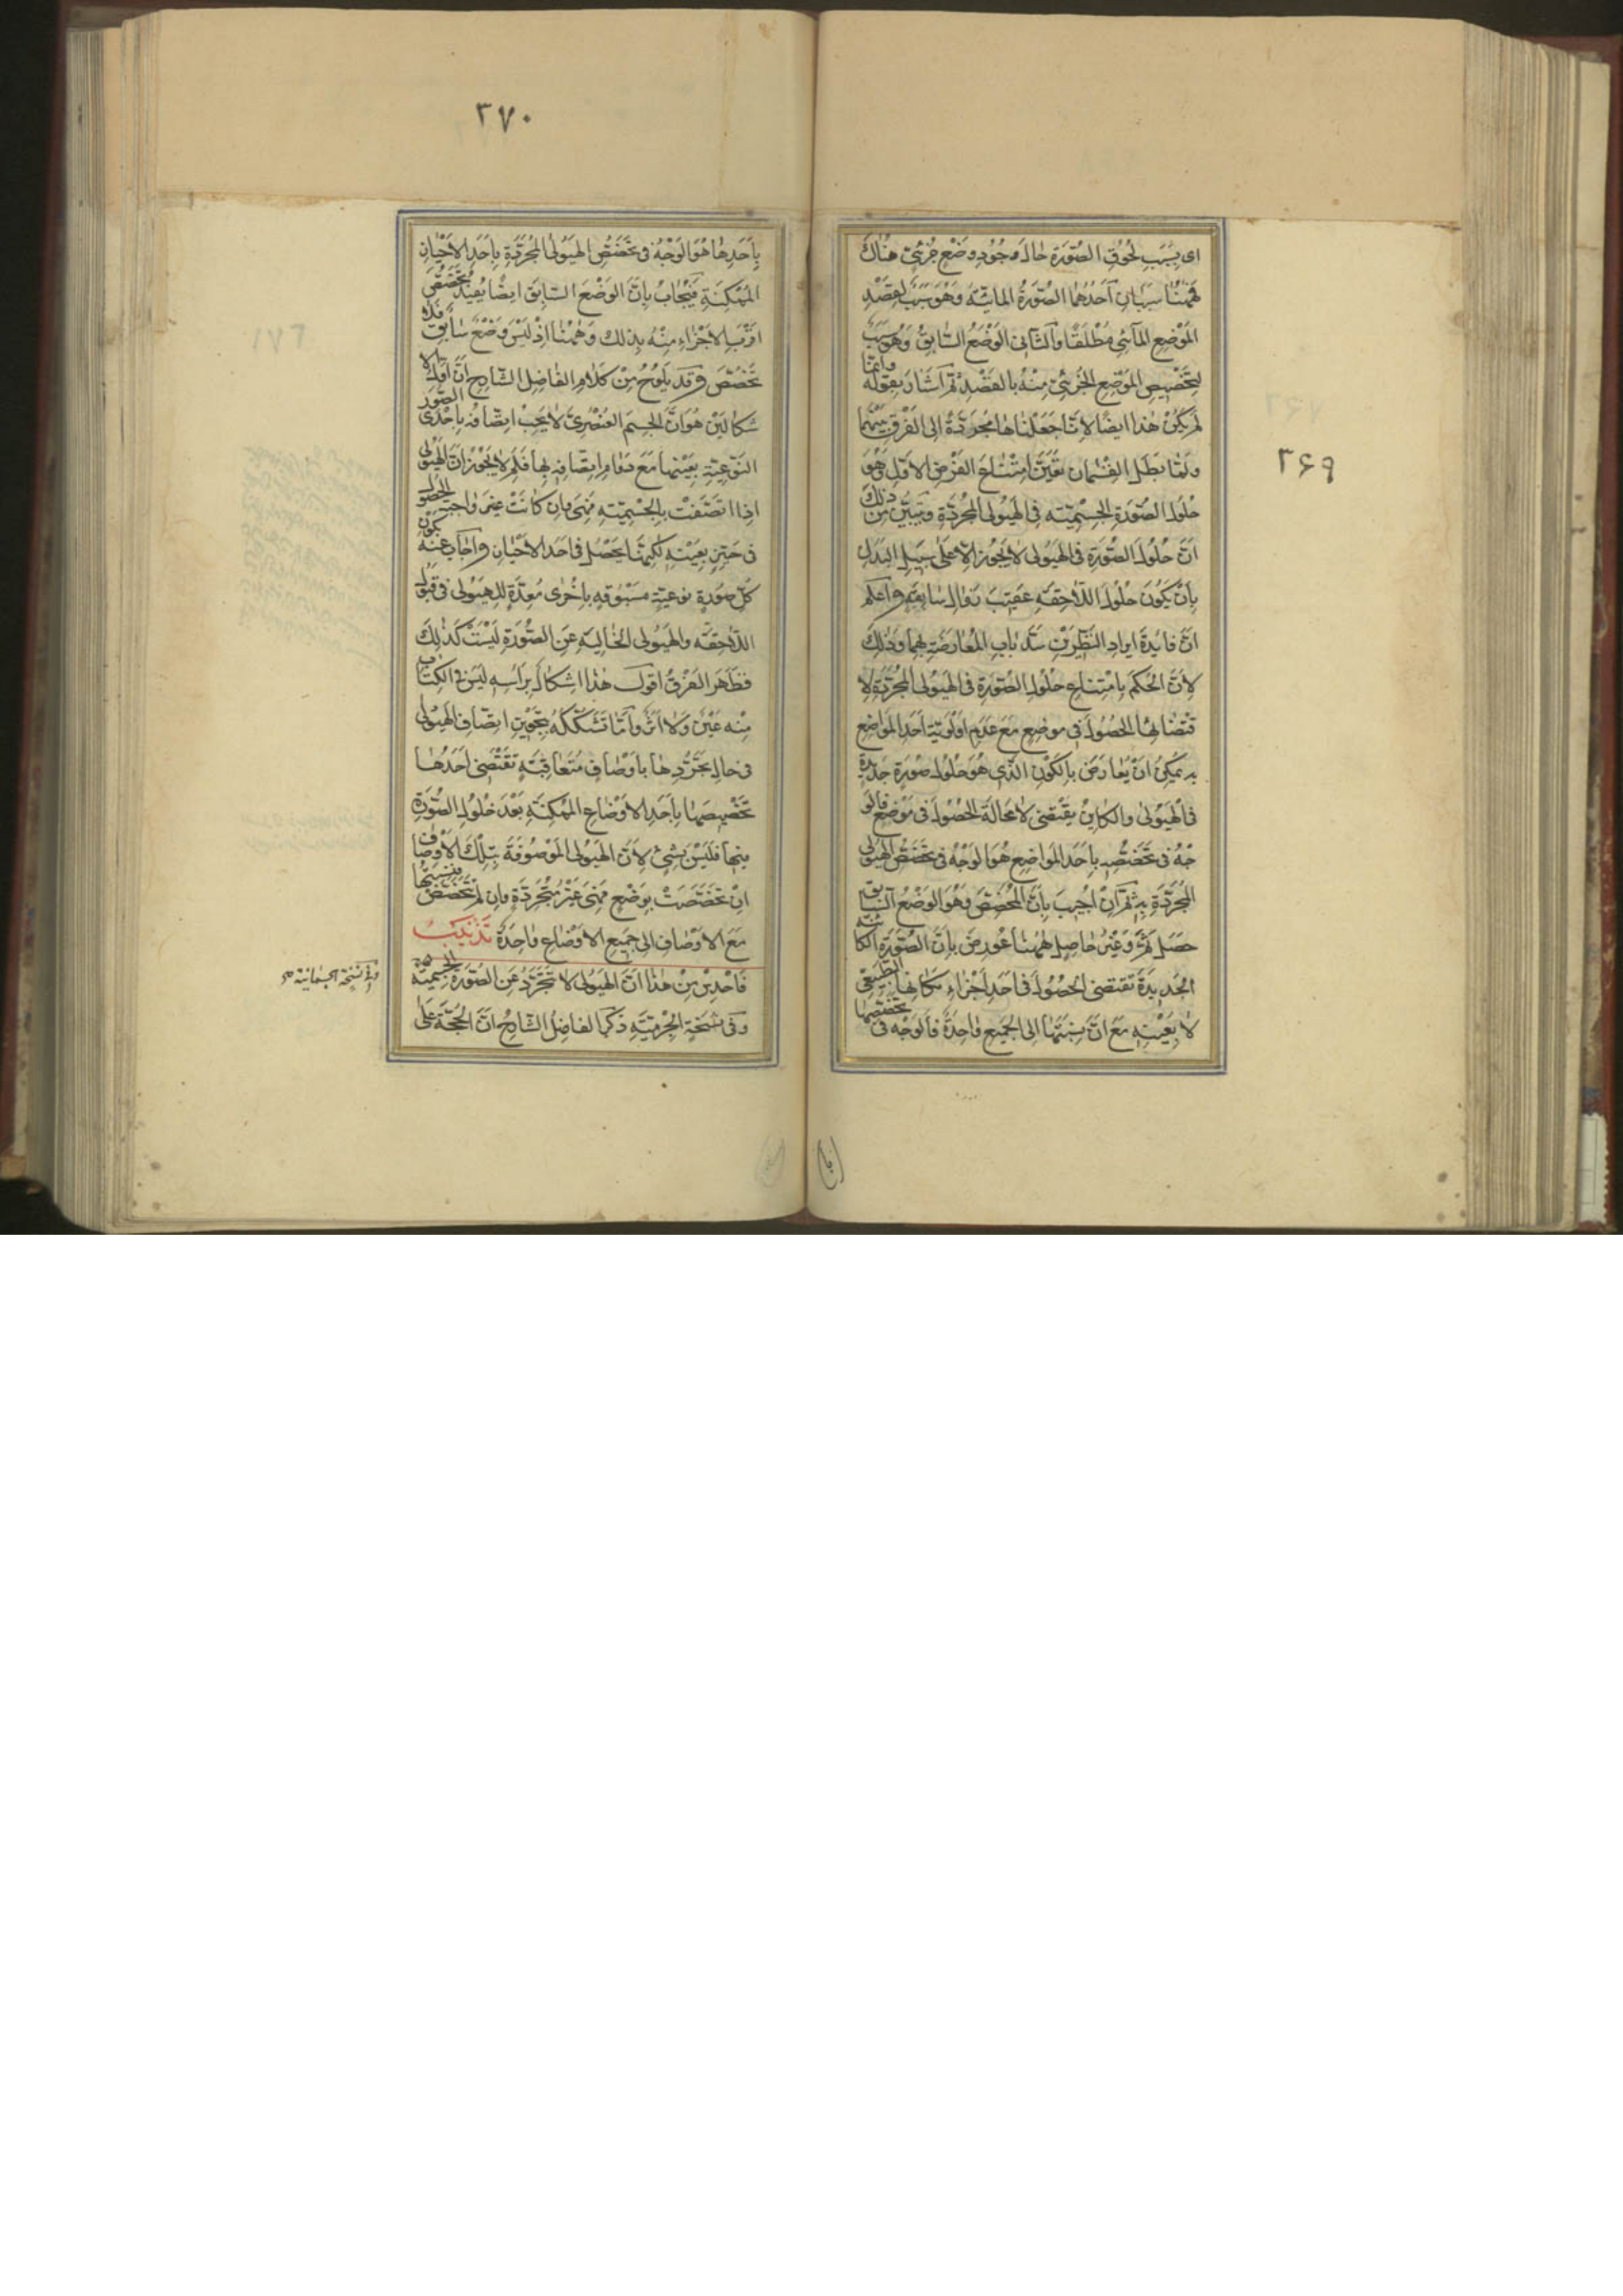 ۳۶۹
اى بِسَبَبِ لحُوُقِ الصُّورَةِ حٰالَ وجُوُدِ وضْعٍ جُزئىٍّ هُنٰاكَ
فَهٰهُنٰا سَبَبٰانِ اَحَدُهُما الصُّورَةُ المائيّة وَهُوَ سَبَبٌ لِقَصْدِ
المَوْضِعِ المٰآئىِ مُطْلَقًا وَالثّانى الوَضْعُ السّٰابِقُ وَهُوَ سَبَبٌ
لِتَخْصيصِ المَوْضِعِ الجُزئىِّ مِنْهُ بالقَصْدِ ثمّ اَشَارَ بقوله وانّما
لم يَكُنْ هٰذا ايضًا لاِنّا جَعَلْنٰاهٰا مُجَرّدَةً الى الفَرْقِ بَيْنَهُما
ولمّا بَطَلَ القِسْمٰان تَعَيَّنَ امْتِنٰاعُ الفَرْضِ الاوّلِ وَهُوَ
حُلُولُ الصُّورَةِ الجِسْمِيّة فى الهَيُولى المُجَرّدَةِ وتَبَيَّنَ مِنْ ذٰلِكَ
اَنَّ حُلُولَ الصُّورَةِ فى الهَيُولى لا يَجُوزُ الاّ عَلى سَبيلِ البَدَلِ
بِاَنْ يَكُونَ حُلُولُ اللاّحِقَةِ عَقيبَ زَوٰالِ سٰابِقَةٍ واعْلَم
انَّ فايدَةَ ايرادِ النَّظيرَيْنِ سَدُّ بٰابِ المُعٰارَضَةِ بِهِما وَذٰلِكَ
لاَِنَّ الحُكْمَ بِامْتِنٰاعِ حُلُولِ الصُّورَةِ فى الهَيُولى المُجَرَّدَةِ لا
قْتِضٰائِهٰا الحُصُولَ فى موضِعٍ مَعَ عَدَمِ اَوْلَوِيّةِ اَحَدِ المَوٰاضِعِ
بِهِ يُمْكِنُ اَنْ يُعٰارَضَ بِالكَوْنِ الّذى هُوَ حُلُولُ صُورَةٍ جَديدَةٍ
فى الهَيُولى والكاينُ يَقْتَضى لا مَحٰالَةَ الحُصُولَ فى مَوْضِعٍ فالو
جْهُ فى تَخَصُّصِهِ بِاَحَدِ المَوٰاضِعِ هُوَ الوَجْهُ فى تَخَصُّصِ الهَيُولى
المُجَرَّدَةِ بِهِ ثُمَّ اِنْ اُجيبَ بِاَنَّ المُخَصِّصَ وَهُوَ الوَضْعُ السّٰابِقُ
حٰصِلٌ ثَمَّ وَغَيْرُ حٰاصِلٍ هٰهُنٰا عُورِضَ بِاَنَّ الصُّورَةَ الكٰائِنَةَ
الجَديدَةَ تَقْتَضى الحُصُولَ فى اَحَدِ اَجْزٰاءِ مَكٰانِهَا الطّبيعىِّ
لا بِعَيْنِهِ مَعَ اَنَّ نِسْبَتَهٰا الى الجَميعِ وٰاحِدَةٌ فَالوَجْهُ فى تَخَصُّصِهٰا
۳۷۰
بِاَحَدِهٰا هُوَ الوَجْهُ فى تَخَصُّصِ الهَيُولى المُجَرَّدَةِ بِاَحَدِ الاَحْيٰازِ
المُمْكِنَةِ فَيُجٰابُ بِاَنَّ الوَضْعَ السّابِقَ ايضًا يُفيدُ تَخَصُّصَ
اَقْرَبِ الاَجْزٰاءِ مِنْهُ بِذلك وَهٰهُنٰا اِذْ لَيْسَ وَضْعٌ سٰابِقٌ فَلا
تَخَصُّصَ وقَد يَلُوحُ مِنْ كَلامِ الفاضِلِ الشّارِحِ اَنَّ اَوّلَ الا
شكٰالَيْنِ هُوَ اَنَّ الجِسْمَ العُنْصُرِىَّ لا يَجِبُ اتّصٰافُه بِاِحْدى الصُّوَرِ
النّوْعِيّةِ بِعَيْنِها مَعَ دَوٰامِ اتّصٰافِهِ بِهٰا فَلِمَ لا يَجُوزُ اَنَّ الهَيُولى
اِذا اتَّصَفَتْ بِالجِسْمِيّةِ فَهِىَ وَاِن كٰانَتْ غَيْرَ وٰاجِبَةِ الحُصُولِ
فى حَيِّزٍ بِعَيْنِهِ لكِنّهٰا يَحْصُلُ فى اَحَدِ الاَحْيٰازِ واَجٰابَ عَنْهُ بكون
كُلِّ صُورَةٍ نوعيّةٍ مَسْبُوقةٍ بِاُخْرٰى مُعِدَّةٍ لِلهَيُولى فى قَبُولِ
اللاّحِقَة والهَيُولى الخٰالِيَةِ عَنِ الصُّورَةِ لَيْسَتْ كَذٰلِكَ
فَظَهَرَ الفَرْقُ اقول هٰذا اشكٰالٌ بِرَأسِهِ لَيْسَ فى الكِتٰابِ
مِنْه عَيْنٌ وَلا اَثَرٌ وَاَمّا تَشَكُّكُهُ بِتَجْويزِ اتّصٰافِ الهَيُولى
فى حٰالِ تَجَرُّدِهٰا باَوْصٰافٍ مُتَعٰاقِبَةٍ تَقْتَضى اَحَدُهٰا
تَخْصيصَهٰا بِاَحَدِ الاَوْضٰاعِ المُمْكِنَةِ بَعْدَ حُلُولِ الصُّورَةِ
فيهٰا فَلَيْسَ بِشَىْءٍ لاَِنَّ الهَيُولى المَوْصُوفَةَ بِتِلْكَ الاَوْصٰافِ
اِنْ تَخَصَّصَتْ بِوَضْعٍ فَهِىَ غَيْرُ مُتَجَرِّدَةٍ وَاِن لَمْ تَتَخَصَّصْ فنسبتها
مَعَ الاَوْصٰافِ الى جَميعِ الاَوْضٰاعِ وٰاحِدَةٌ تَذْنيبٌ
فَاحْدِسْ مِنْ هٰذا اَنَّ الهَيُولى لا تَتَجَرَّدُ عَنِ الصُّورَةِ الجِسْمِيّة
وَفى نُسْخَةٍ الجِرْمِيّةِ ذَكَرَ الفاضِلُ الشّارِحُ اَنَّ الحُجَّةَ عَلى
وفى نسخة الجسمانية